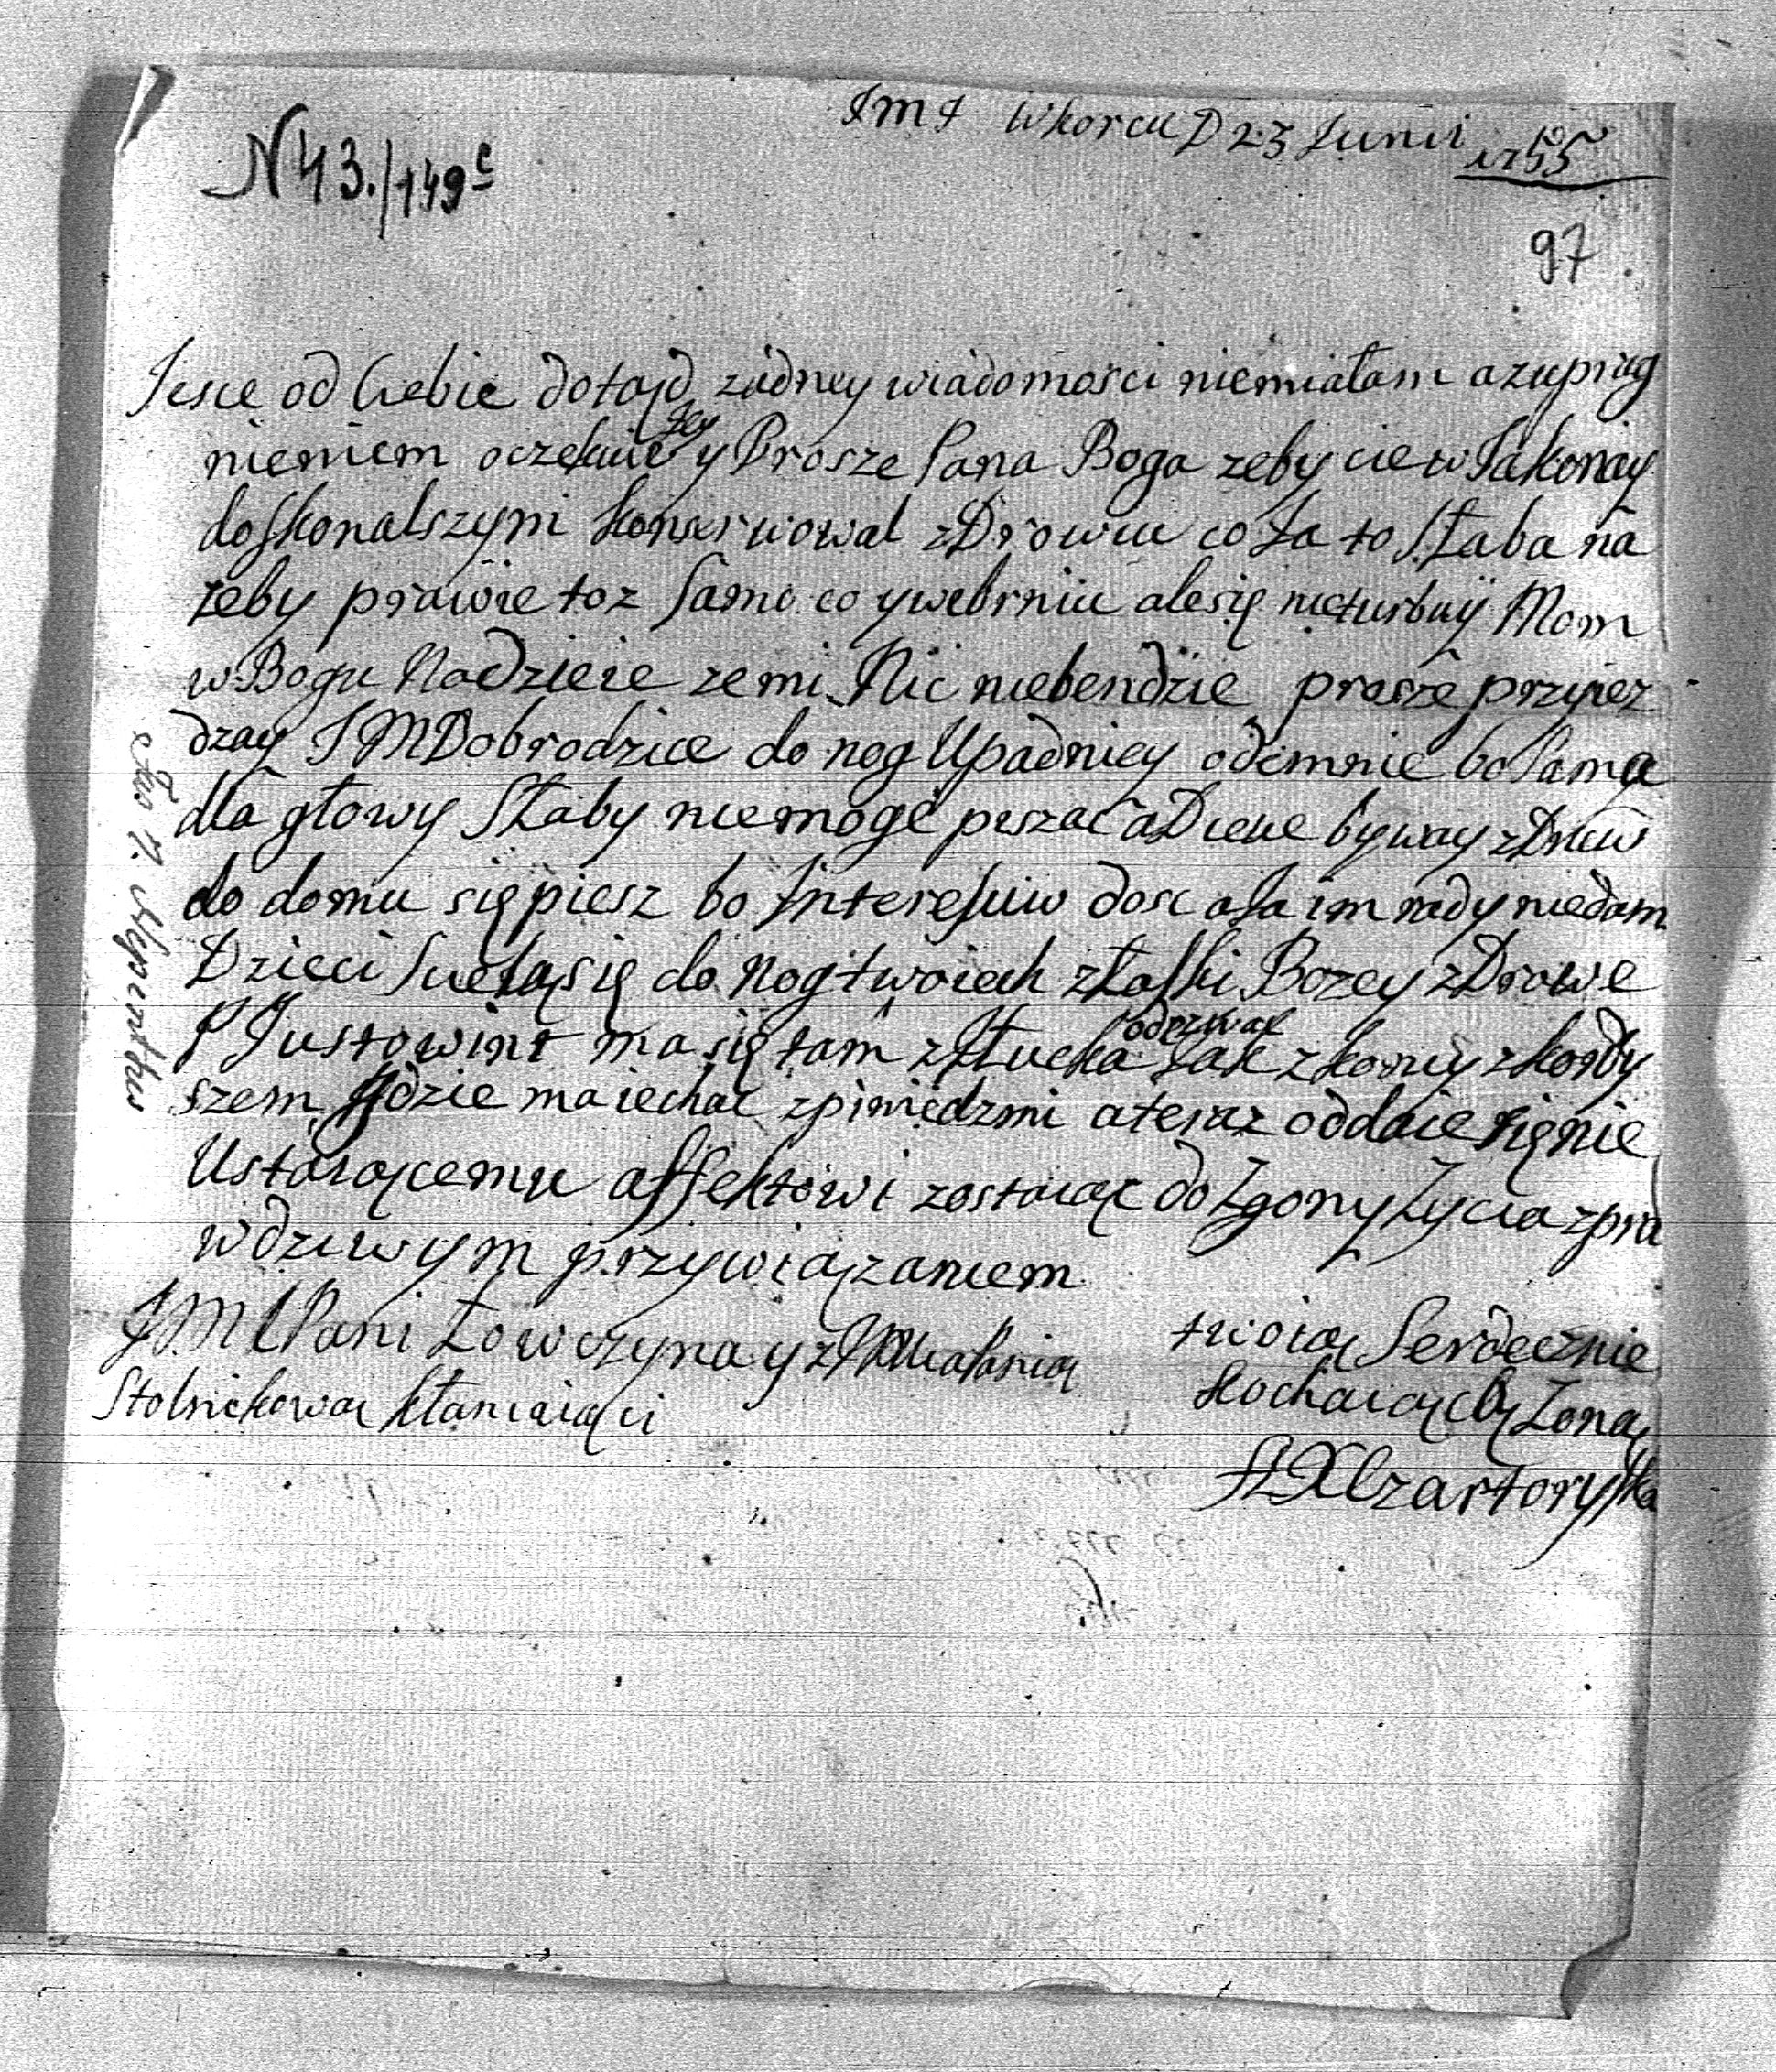 JMJ w Korcu D 23 Junii 1755
N 43./149c
97
Jesce od Ciebie dotąd żadney wiadomości niemiałam a z uprag
nieniem oczekuie Jey y Prosze Pana Boga zeby cie w Jakonay
doskonalszym konserwowal zDrowiu co Ja to Słaba na
zeby prawie toz Samo co y w ale się nieturbuÿ Mom
w Bogu Nadzieie ze mi Nic niebendzie prosze przyiez
dzay J M Dobrodzice do nog Upadniey odemnie bo Sama
dla głowy Słaby niemoge piszać a Dieue byway zDruw
do domu się piesz bo Interesuw dosc a Ja im rady niedam
Dzieci Scielą się do Nog twoich z Łaski Bozey zDrowe
P Justowint ma się tam z Słucka odezwac Jak z konmy z kordy
szem gdzie ma iechac z piniedzmi a teraz oddaie się nie
Ustaiącemu affektowi zostaiąc do Zgony Zycia z pra
wdziwym przywiązaniem
twoią Serdecznie
kochaiącą Zoną
JMC Pani Łowczyna y z
Stolnikową kłaniaią ci
XCzartoryska